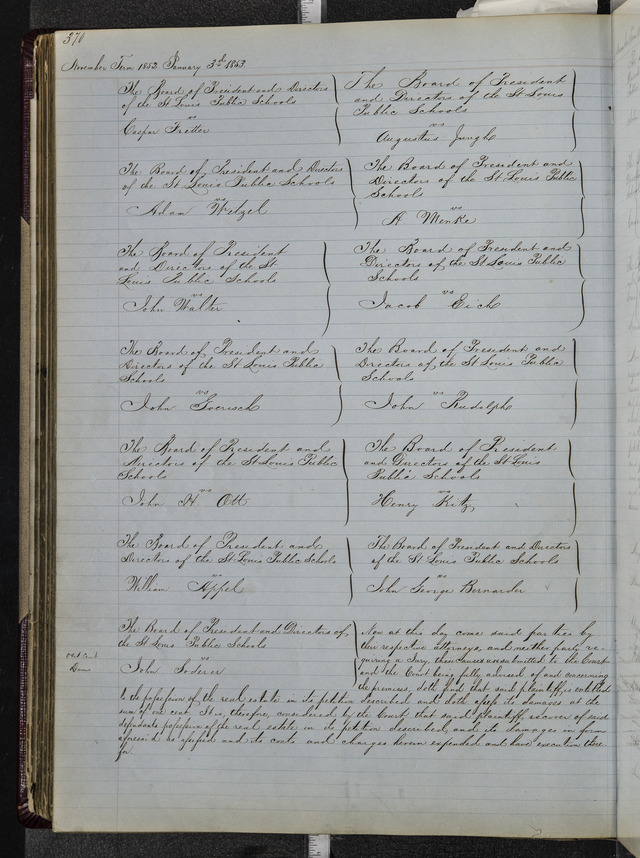 370
November Term 1852 January 3d 1853
The Board of President and Directors
of the St Louis Public Schools
vs
Caspar Fretter
The Board of President
and Directors of the St Louis
Public Schools
vs
Augustus Jungk
The Board of President and Directors
of the St Louis Public Schools
vs
Adam Wetzel
The Board of President and
Directors of the St Louis Public
Schools
vs
A Menke
The Board of President
and Directors of the St
Louis Public Schools
vs
John Walter
The Board of President and
Directors of the St Louis Public
Schools
vs
Jacob Eich
The Board of President and
Directors of the St Louis Public
Schools
vs
John Goerisch
The Board of President and
Directors of the St Louis Public
Schools
vs
John Rudolph
The Board of President and
Directors of the St Louis Public
Schools
vs
John H. Ott
The Board of President
and Directors of the St Louis
Public Schools
vs
Henry Kitz
The Board of President and
Directors of the St Louis Public Schools
vs
William Appel
The Board of President and Directors
of the St Louis Public Schools
vs
John George Bernarder
The Board of President and Directors of
the St Louis Public Schools
vs
John Soderer
Now at this day come said parties by
their respective attorneys, and neither party re-
quiring a Jury, these causes are submitted to the Court
and the Court being fully advised of and concerning
the premises, doth find that said plaintiff is entitled
to the possession of the real estate in its petition described and doth assess its damages at the
sum of one cent. It is therefore considered by the Court that said Plaintiff recover of said
defendants possession of the real estate in its petition described, and its damages in form
aforesaid as assessed and its costs and charges herein expended and have execution there-
for.